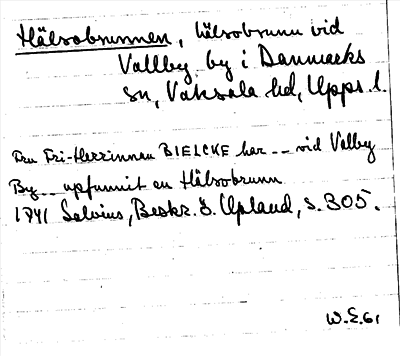 Hälsobrunnen, hälsobrunn vid
Vallby by i Danmarks
sn, Vaksala hd, Upps. l.
Fru Fri-Herrinnan BIELCKE har -- vid Valby
By -- upfunnit en Hälsobrunn
1741 Salvius, Beskr. ö. Upland, s. 305.
W.E.61